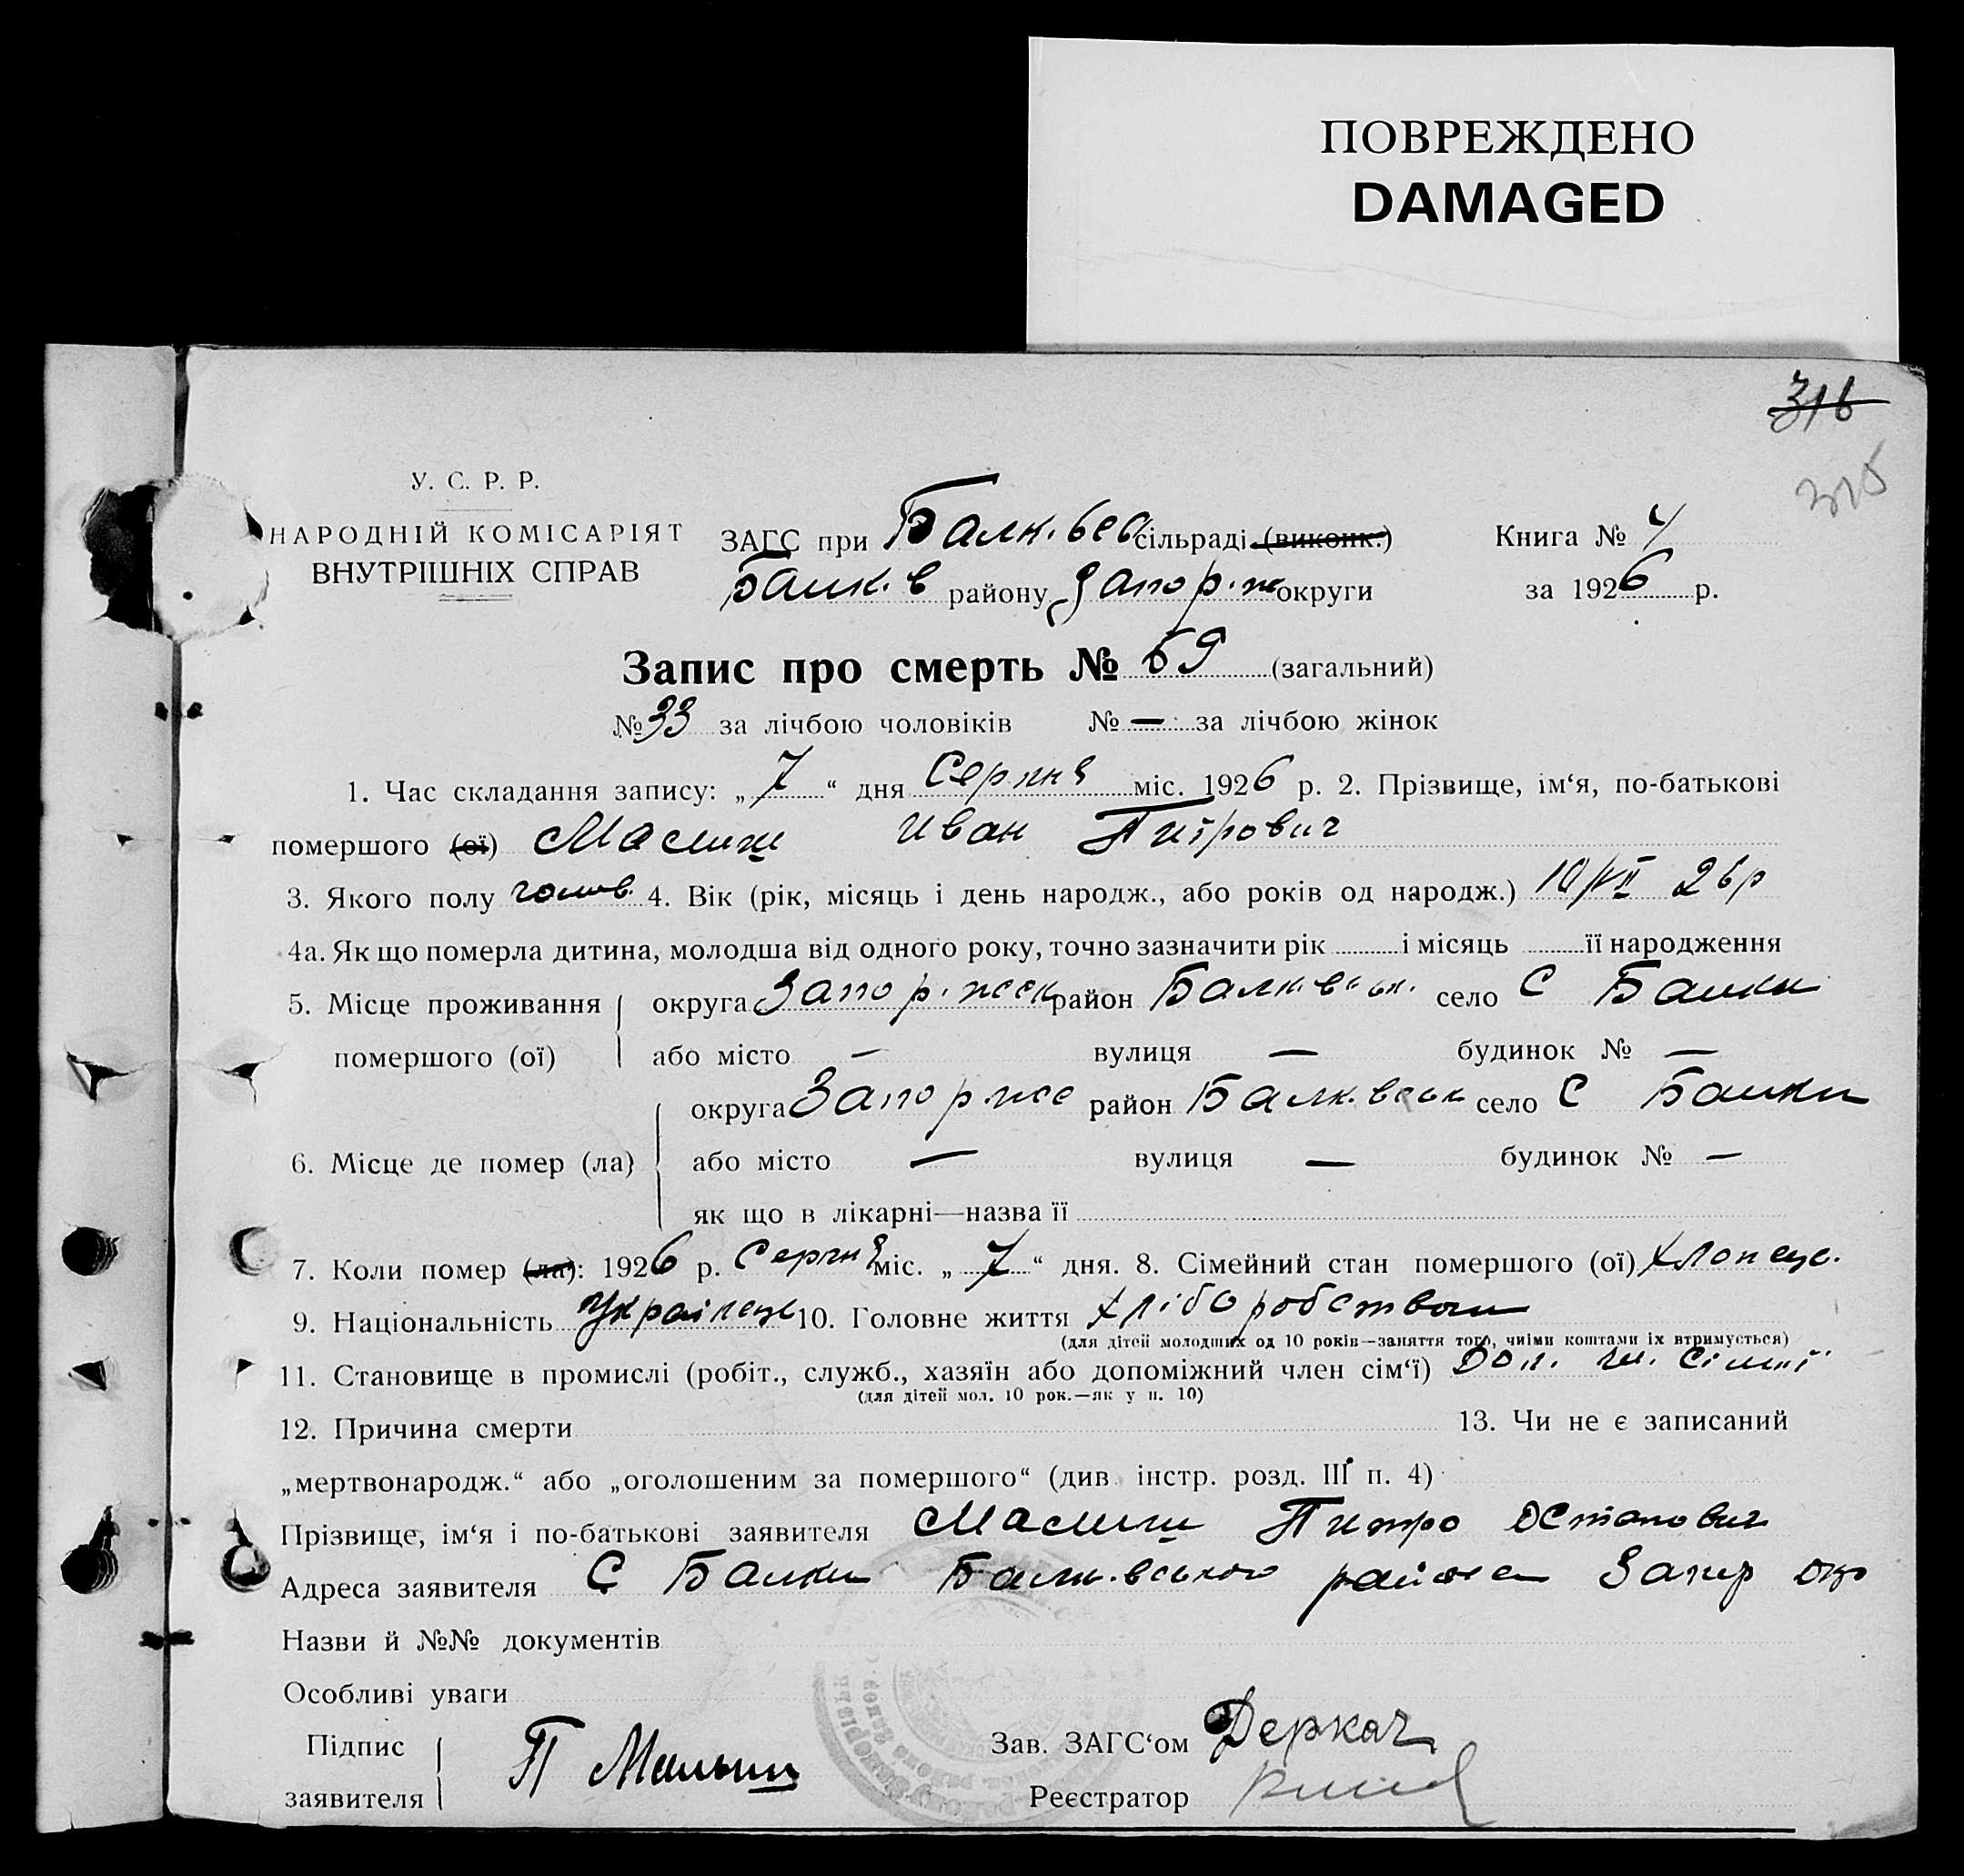 ПОВРЕЖДЕНО
DAMAGED
316
315
У. С. Р. Р.
НАРОДНІЙ КОМІСАРІЯТ
ВНУТРІШНІХ СПРАВ
ЗАГС при Балк. вес сільраді (виконк.) Книга № 4
Балк. в району Запор. ж округи за 1926 р.
Запис про смерть № 69 (загальний)
№ 33 за лічбою чоловіків № — за лічбою жінок
1. Час складання запису: „ 7 “ дня Серпня міс. 1926 р. 2. Прізвище, ім‘я, по-батькові
помершого (ої) Малиш Иван Питрович
3. Якого полу чолов. 4. Вік (рік, місяць і день народж., або років од народж.) 10/VII 26 р
4а. Як що померла дитина, молодша від одного року, точно зазначити рік і місяць її народження
5. Місце проживання округа Запор. район Балк. село С Балки
помершого (ої) або місто — вулиця — будинок № —
округа Запор. район Балк. село С Балки
6. Місце де помер (ла) або місто — вулиця — будинок № —
як що в лікарні—назва її
7. Коли помер (ла): 1926 р. Серпня міс. „ 7 “ дня. 8. Сімейний стан помершого (ої) хлопець.
9. Національність Українець 10. Головне життя хліборобством
(для дітей молодших од 10 років—заняття того, чиїми коштами їх втримується)
11. Становище в промислі (робіт., служб., хазяїн або допоміжний член сім‘ї) Доп. чл. сімьї
(для дітей мол. 10 рок.—як у п. 10)
12. Причина смерти 13. Чи не є записаний
„мертвонародж.“ або „оголошеним за помершого“ (див. інстр. розд. III п. 4)
Прізвище, ім‘я і по-батькові заявителя Малиш Питро Остапович
Адреса заявителя С Балки Балк. вського района Запор окр
Назви й №№ документів
Особливі уваги
Підпис
заявителя П Малыш
Зав. ЗАГС‘ом Деркач
Реєстратор